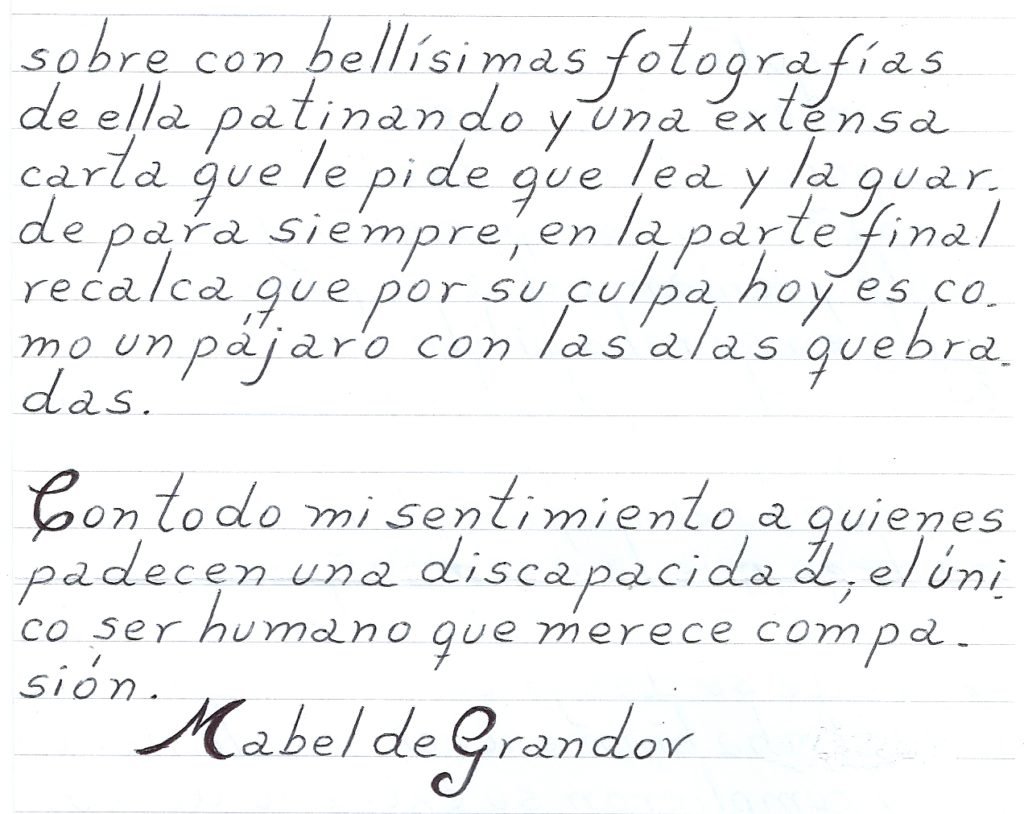 sobre con bellísimas fotografías
de ella patinando y una extensa
carta que le pide que lea y la guar-
de para siempre, en la parte final
recalca que por su culpa hoy es co-
mo un pájaro con las alas quebra-
das.
Con todo mi sentimiento a quienes
padecen una discapacidad, el úni-
co ser humano que merece compa-
sión.
Mabel de Grandov